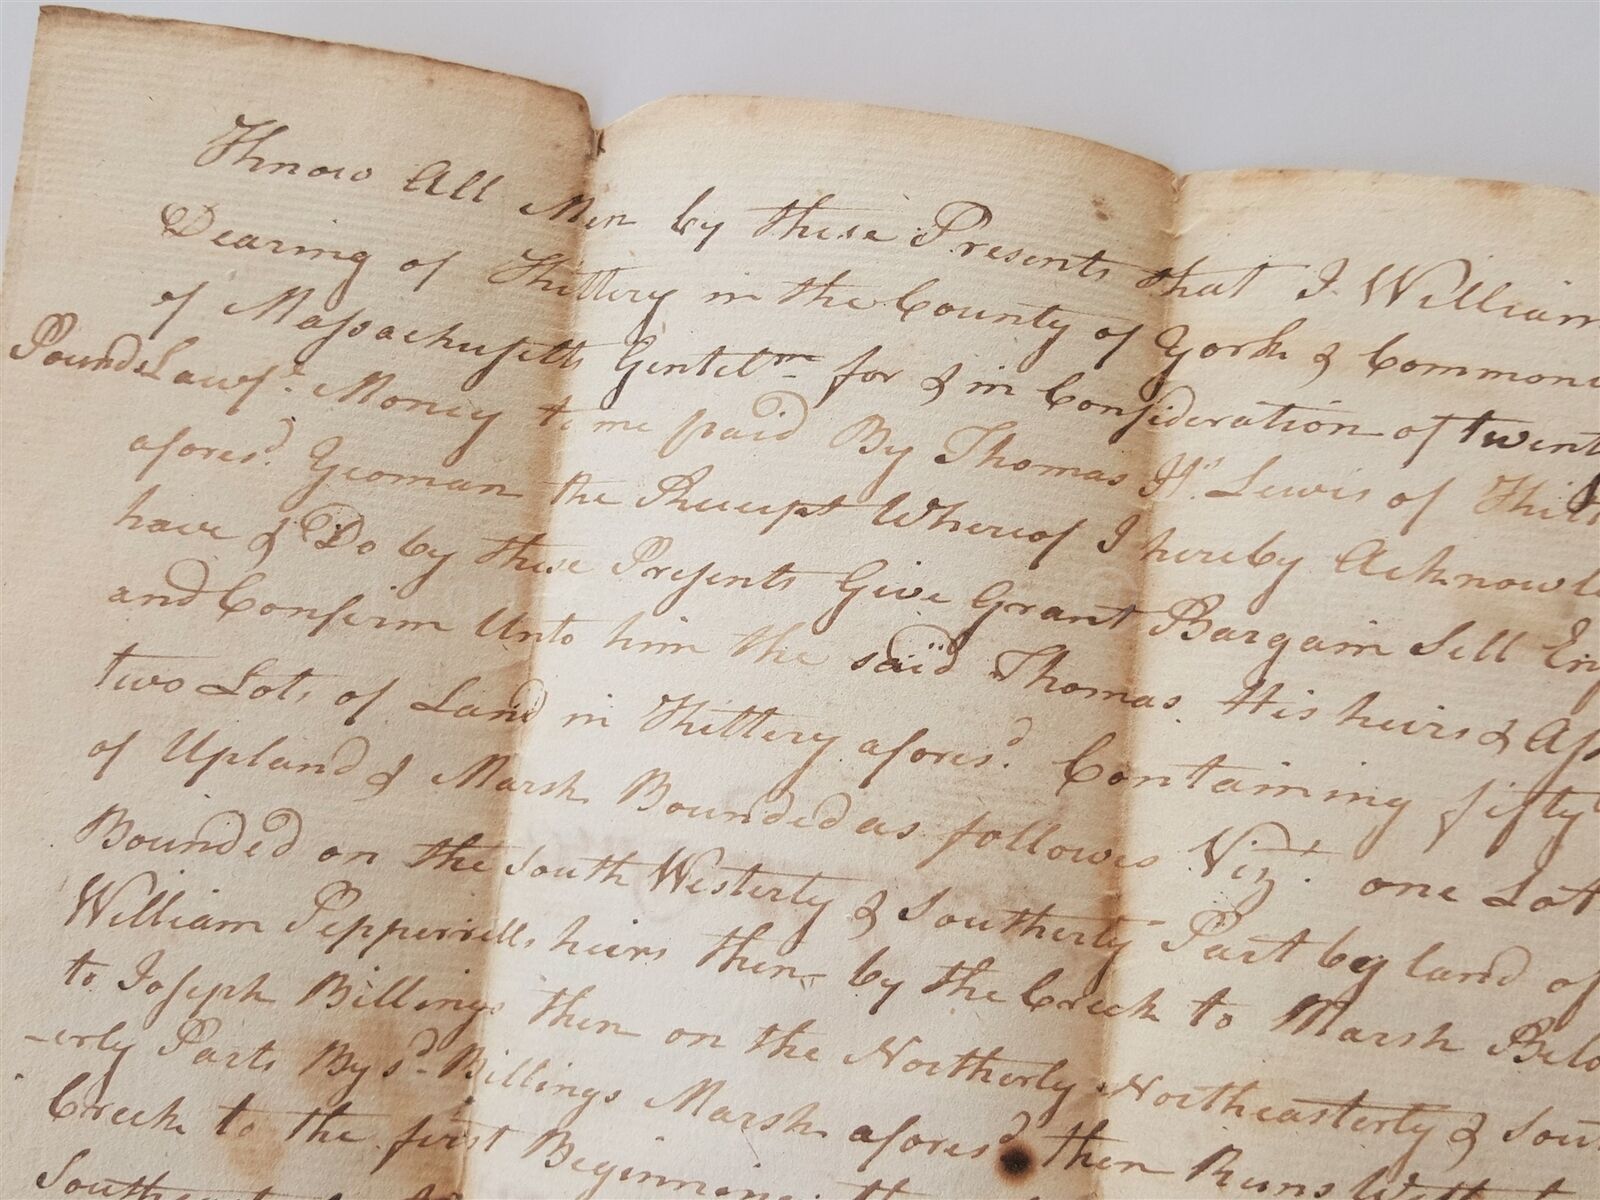 Know All Men by these Presents that I William
Dearing of Kittery in the County of York & Common
of Massachusetts Gentlm for & in Consideration of twent
Pounds Lawf.l Money to me paid By Thomas Lewis of Kitt
afores.d Yeoman the Receipt Whereof I hereby Acknowl
have & Do by these Presents Give Grant Bargain Sell En
and Confirm Unto him the said Thomas His heirs & Ass
two Lots of Land in Kittery afores.d Containing fifty
of Upland & Marsh Bounded as follows Viz.t one Lot
Bounded on the South Westerly & Southerly Part by land of
William Pepperrells heirs then by the Creek to Marsh Belo
to Joseph Billings then on the Northerly Northeasterly & Sou
-erly Parts By s.d Billings Marsh afores.d then Runs
Creek to the first Beginning